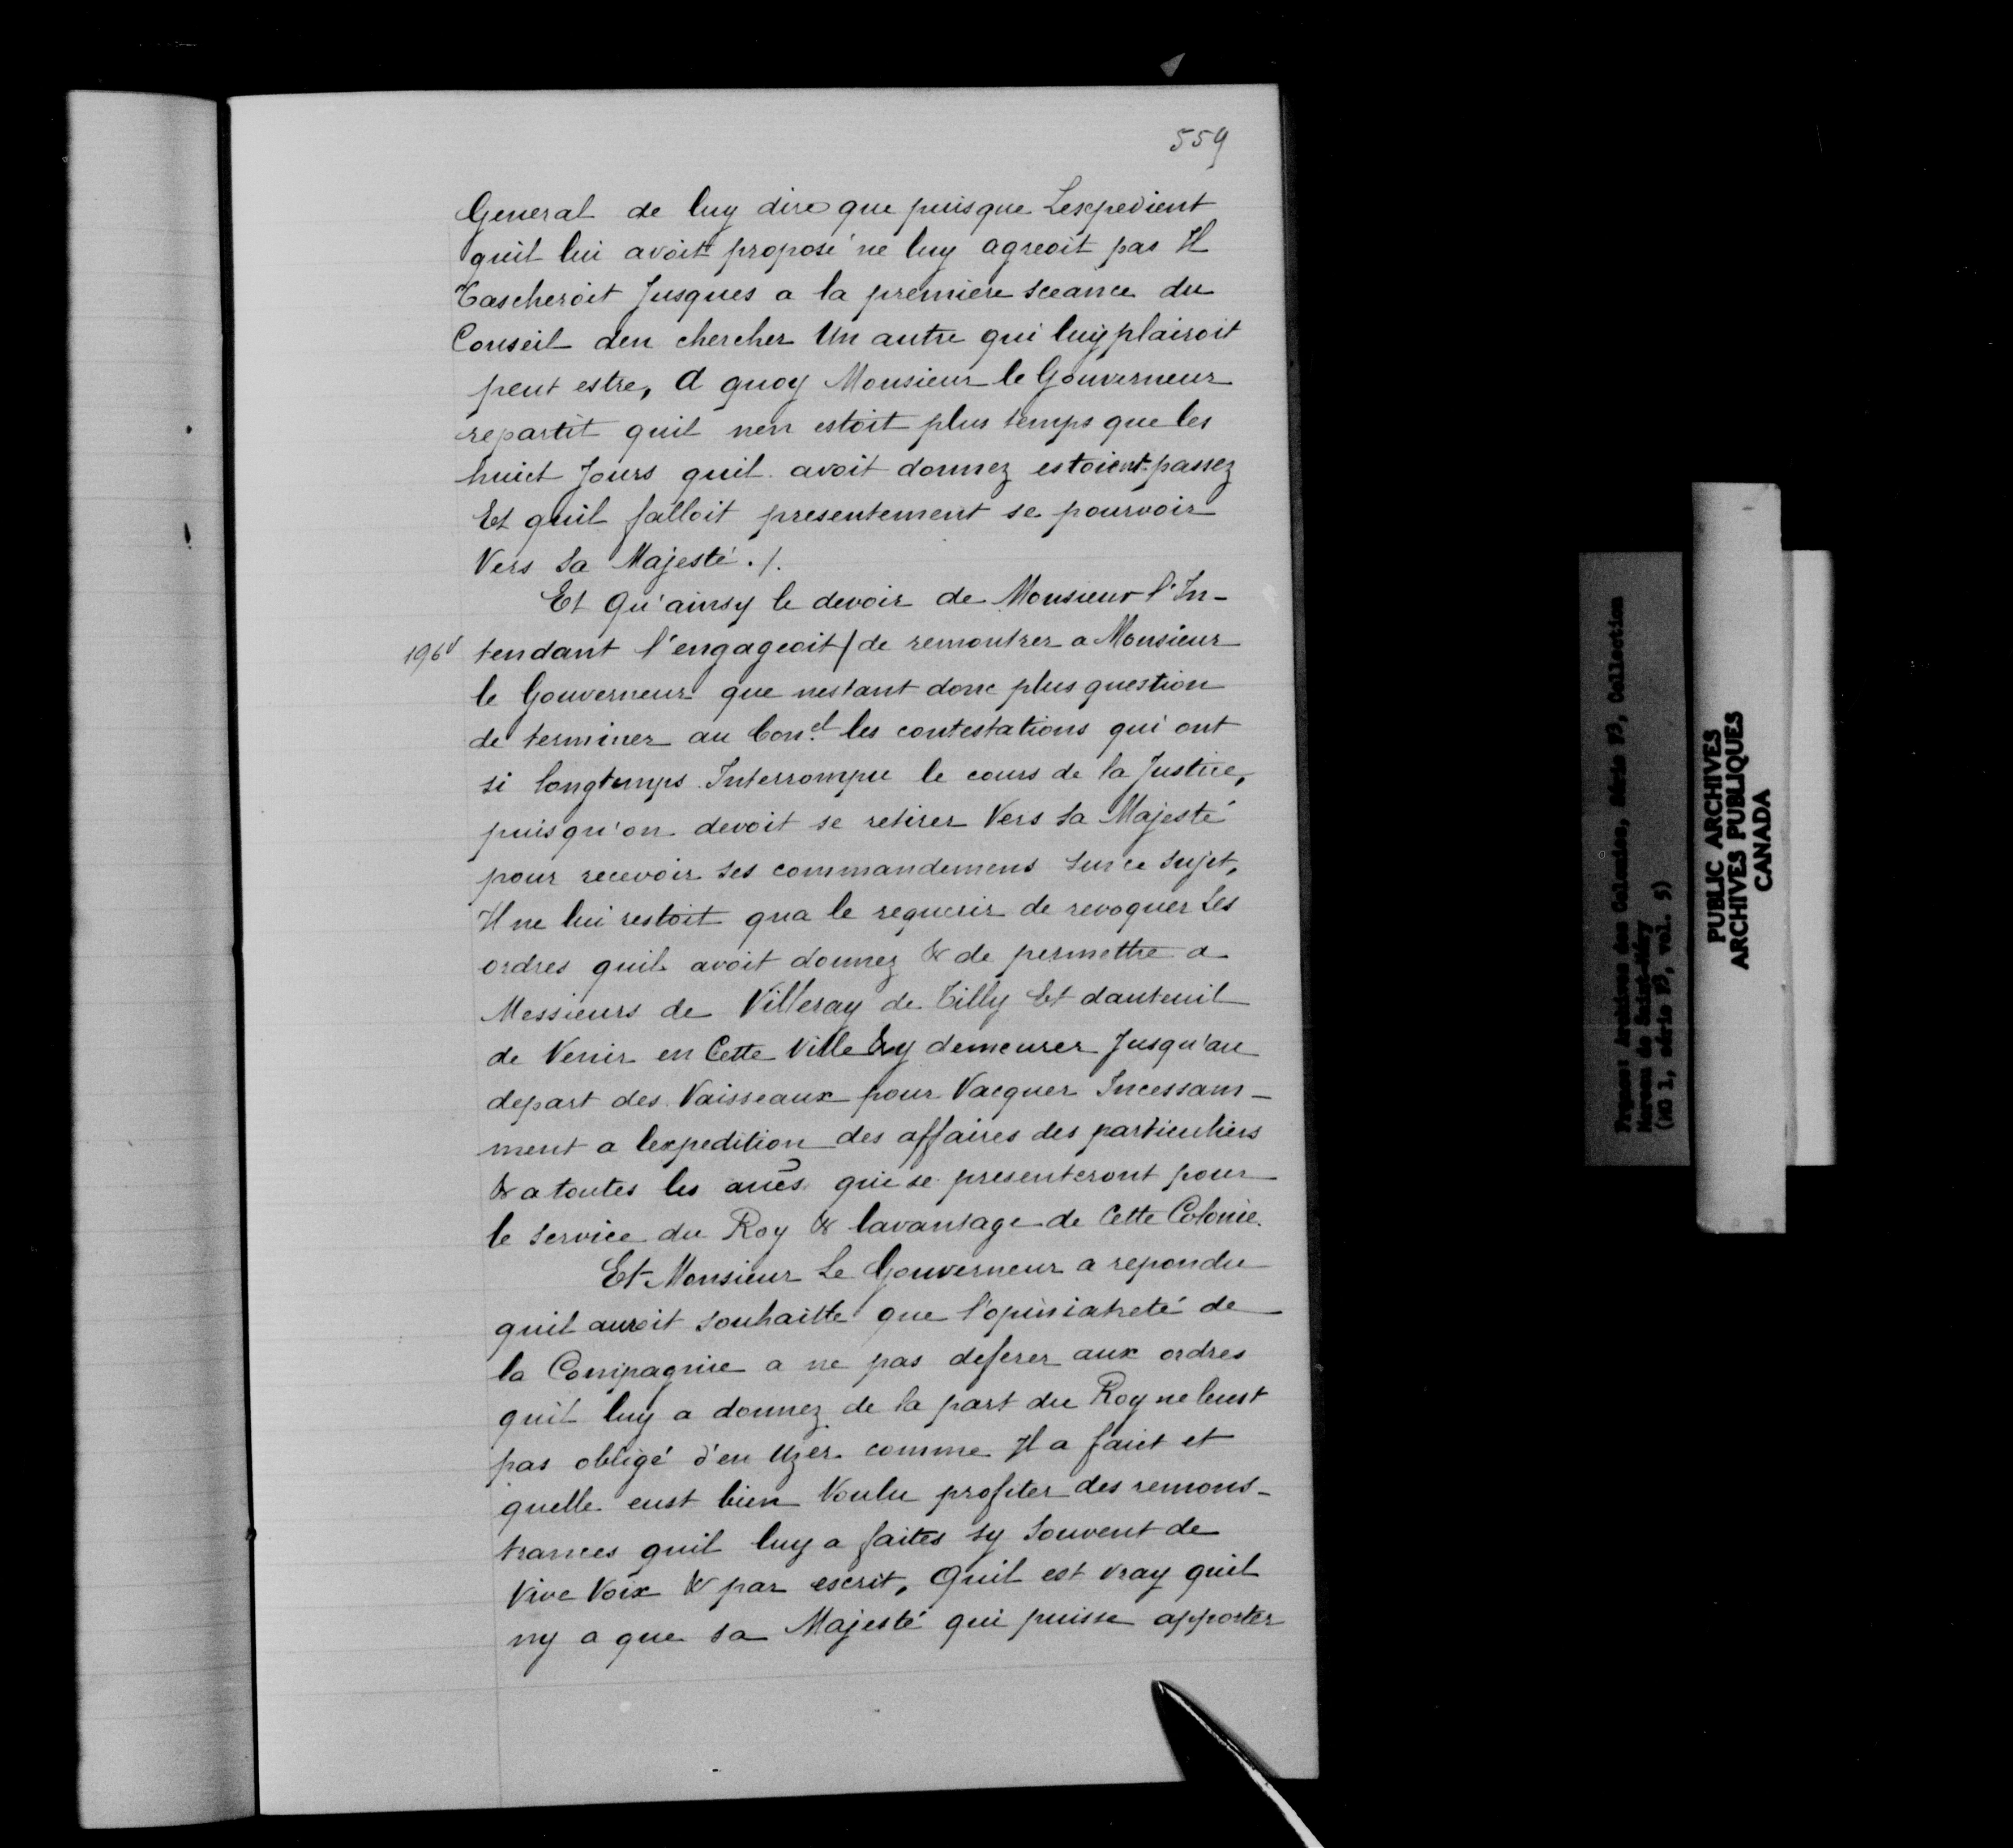 559
General de luy dire que puisque Lexpedient
quil lui avoit proposé ne luy agreoit pas Il
Tascheroit Jusques a la premiere sceance du
Conseil den chercher Un autre qui luy plairoit
peut estre, a quoy Monsieur le Gouverneur
repartit quil nen estoit plus temps que les
huict Jours quil avoit donnez estoient passez
Et quil falloit presentement se pourvoir
Vers Sa Majesté ./.
Et Qu'ainsy le devoir de Monsieur l'In-
196v tendant l'engageoit / de remontrer a Monsieur
le Gouverneur que nestant donc plus question
de terminer au Con.el les contestations qui ont
si longtemps Interrompu le cours de la Justice,
puisqu'on devoit se retirer Vers Sa Majesté
pour recevoir ses commandemens Sur ce Sujet,
Il ne lui restoit qua le requerir de revoquer Les
ordres quil avoit donnez & de permettre a
Messieurs de Villeray de Tilly Et dauteuil
de Venir en Cette Ville & y demeurer Jusqu'au
depart des Vaisseaux pour Vacquer Incessam-
ment a lexpedition des affaires des particuliers
& a toutes les aues qui se presenteront pour
le Service du Roy & lavantage de Cette Colonie.
Et Monsieur Le Gouverneur a repondu
quil auroit Souhaitte que l'opiniatreté de
la Compagnie a ne pas deferer aux ordres
quil luy a donnez de la part du Roy ne leust
pas obligé d'en Uzer comme Il a faict et
quelle eust bien Voulu profiter des remons-
trances quil luy a faites sy Souvent de
Vive Voix & par escrit, Quil est vray quil
ny a que Sa Majesté qui puisse apporter
PUBLIC ARCHIVES
ARCHIVES PUBLIQUES
CANADA
Archives des Colonies, Série F3, Collection
Moreau de Saint-Méry
(MG 1, série F3, vol. 5)